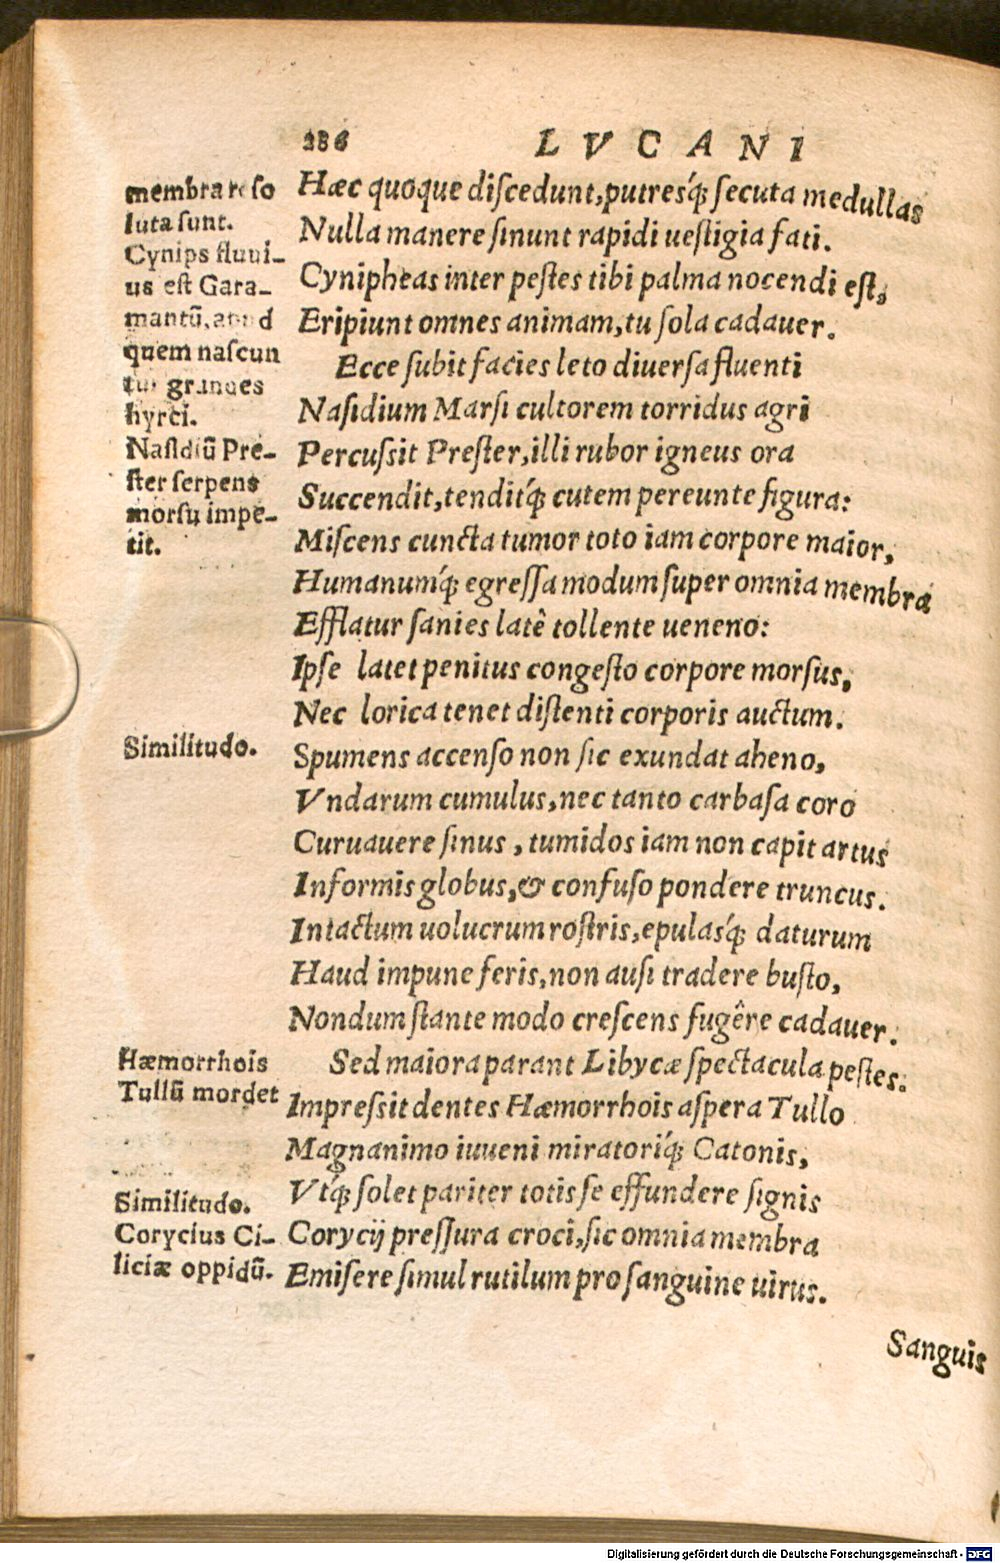 286 LVCANI
membra reso
luta sunt.
Cynips fluui-
us est Gara-
mantū, apud
quem nascun
tur grandes
hyrci.
Nasidiū Pre-
ster serpens
morsu impe-
tit.
Similitudo.
Hæmorrhois
Tullū mordet
Similitudo.
Corycius Ci-
liciæ oppidū.
Hæc quoque discedunt, putresq́; secuta medullas
Nulla manere sinunt rapidi uestigia fati.
Cynipheas inter pestes tibi palma nocendi est,
Eripiunt omnes animam, tu sola cadauer.
Ecce subit facies leto diuersa fluenti
Nasidium Marsi cultorem torridus agri
Percussit Prester, illi rubor igneus ora
Succendit, tenditq́; cutem pereunte figura:
Miscens cuncta tumor toto iam corpore maior,
Humanumq́; egressa modum super omnia membra
Efflatur sanies latê tollente ueneno:
Ipse latet penitus congesto corpore morsus,
Nec lorica tenet distenti corporis auctum.
Spumens accenso non sic exundat aheno,
Vndarum cumulus, nec tanto carbasa coro
Curuauere sinus, tumidos iam non capit artus
Informis globus, & confuso pondere truncus.
Intactum uolucrum rostris, epulasq́; daturum
Haud impune feris, non ausi tradere busto,
Nondum stante modo crescens fugêre cadauer.
Sed maiora parant Libycæ spectacula pestes.
Impressit dentes Hæmorrhois aspera Tullo
Magnanimo iuueni miratoriq́; Catonis,
Vtq́; solet pariter totis se effundere signis
Corycij pressura croci, sic omnia membra
Emisere simul rutilum pro sanguine uirus.
Sanguis
Digitalisierung gefördert durch die Deutsche Forschungsgemeinschaft - DFG